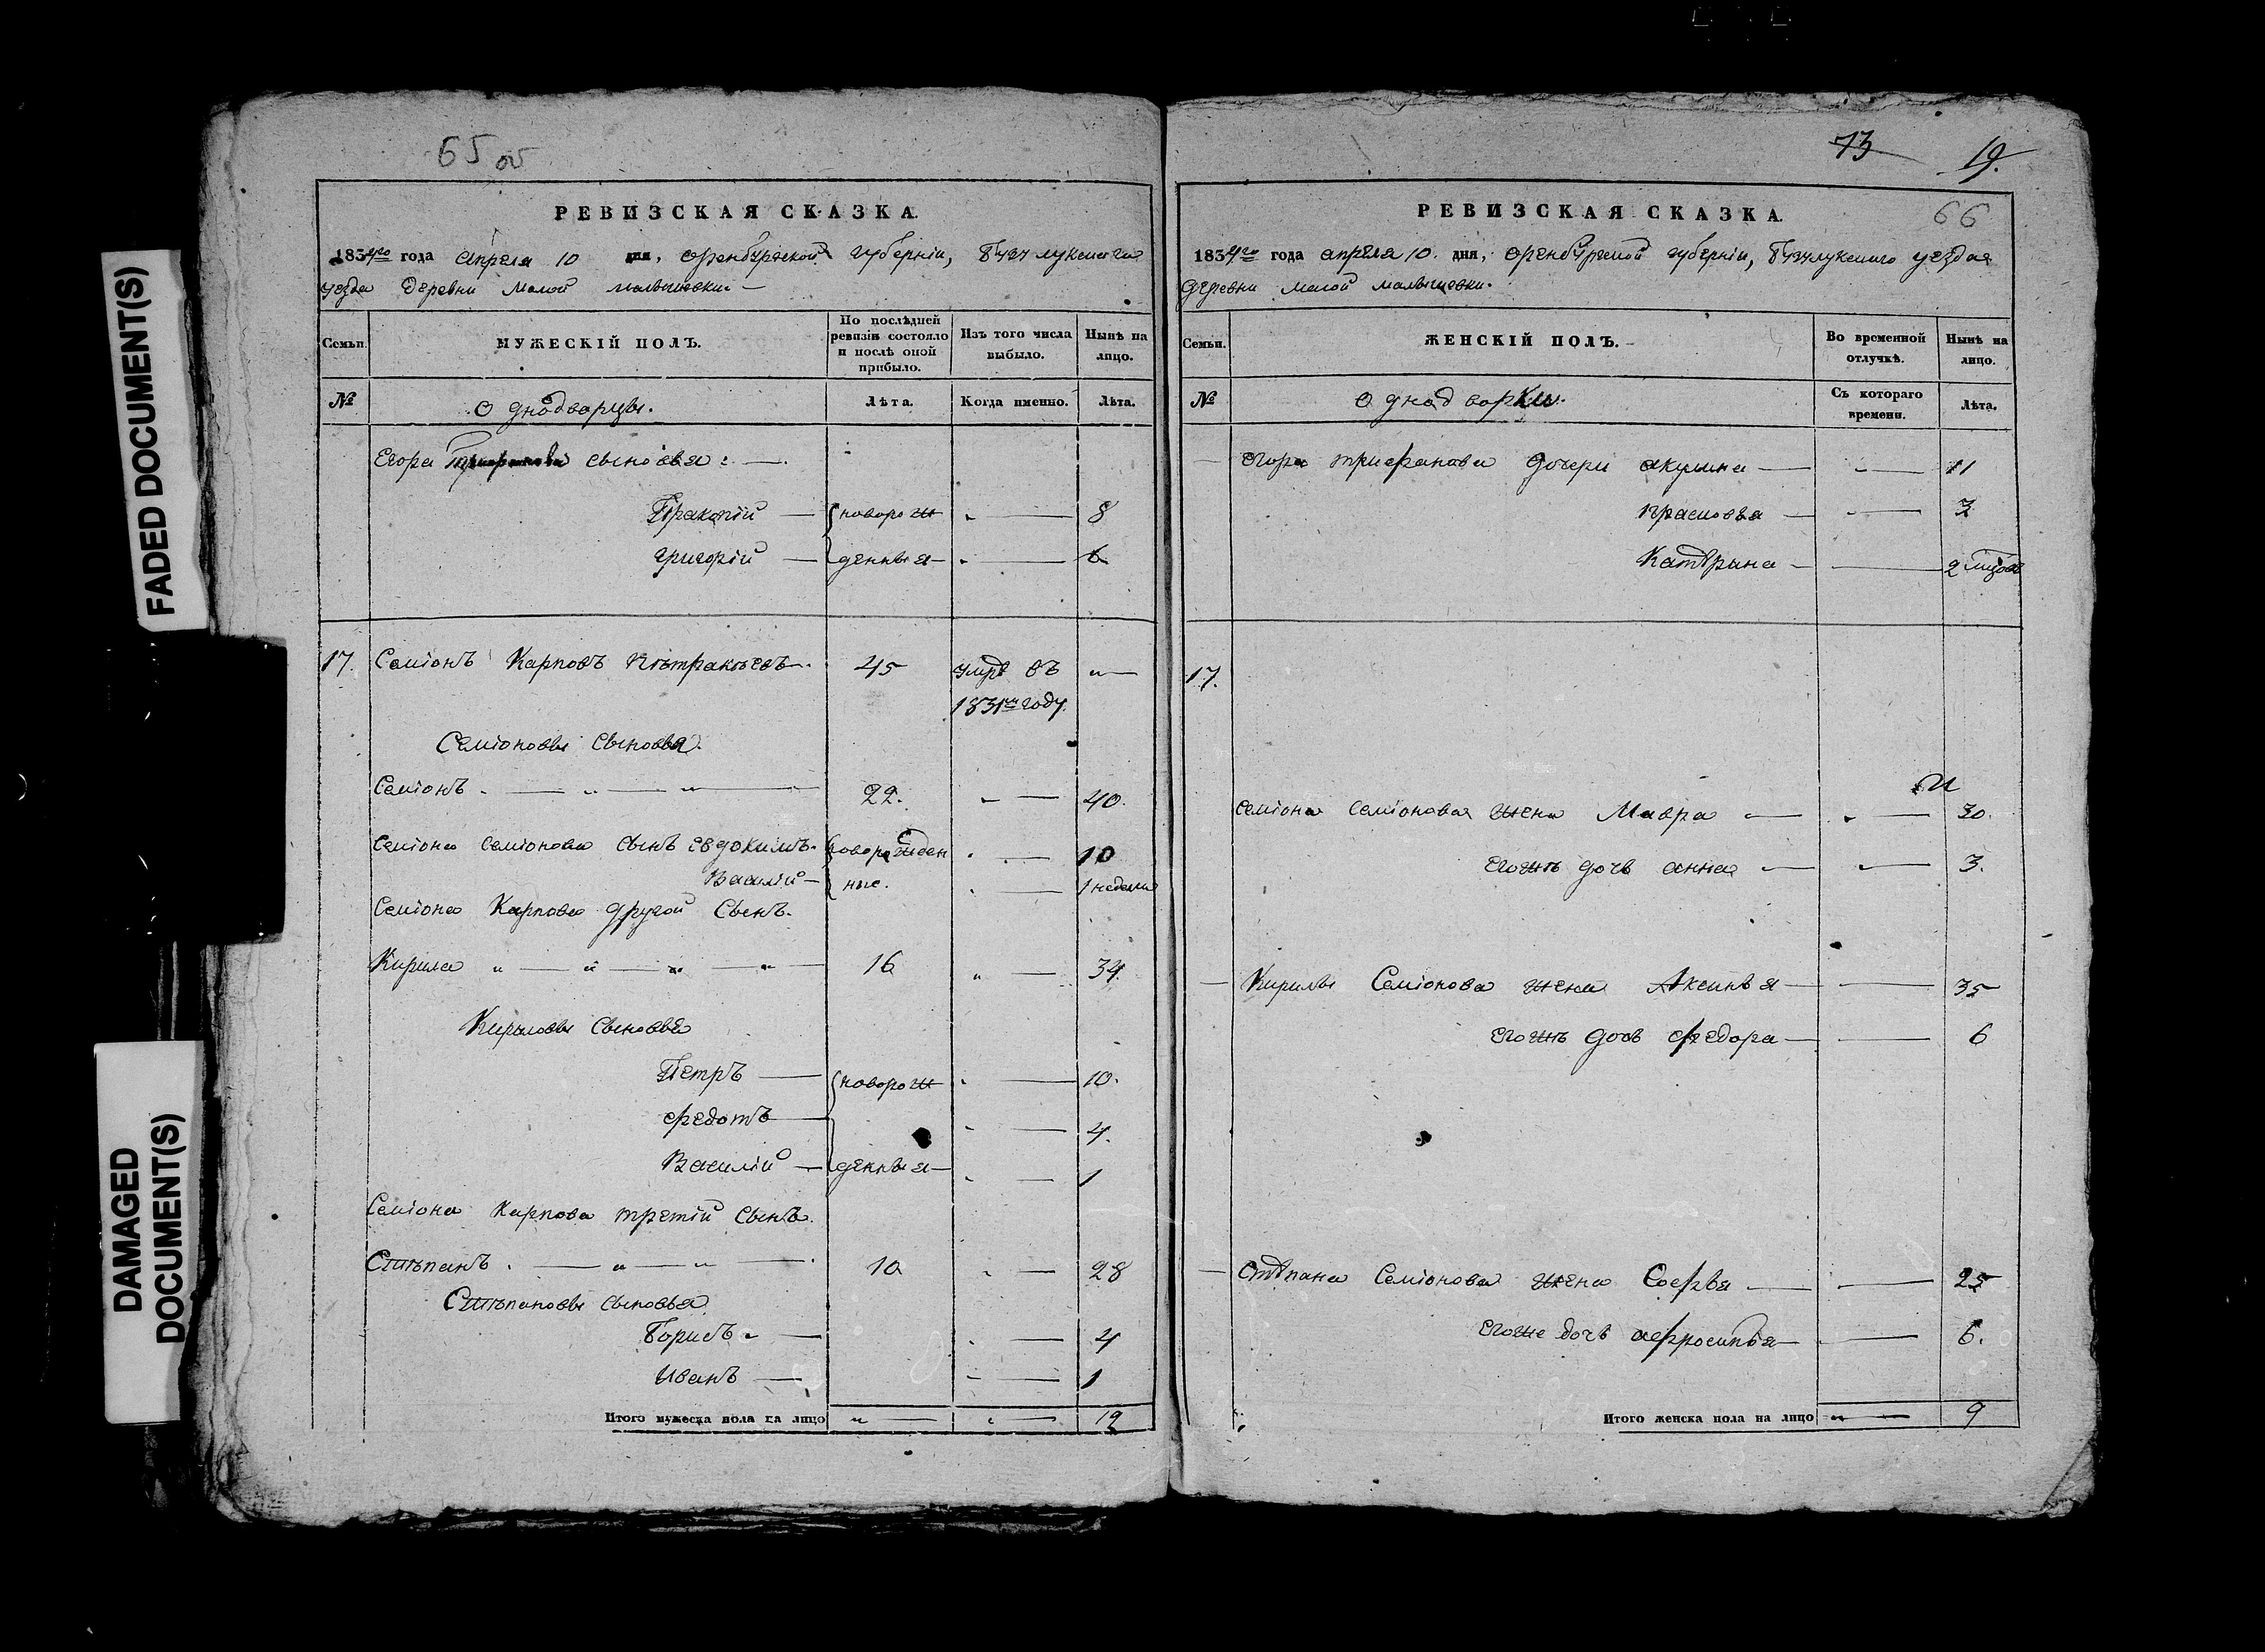 FADED DOCUMENT(S)
DAMAGED
DOCUMENT(S)
65 об
РЕВИЗСКАЯ СКАЗКА.
1834го года апреля 10 дня, оренбургской губернiи, бузулукскаго
уезда деревни малой малышевки.
Семьи.
МУЖЕСКIЙ ПОЛЪ.
По послѣдней ревизiи состояло и послѣ оной прибыло.
Изъ того числа выбыло.
Нынѣ на лицо.
№
однодворцы.
Лѣта.
Когда именно.
Лѣта.
Егора сыновья:
Пракопiй новорож 8
григорiй денныя 6
17. Семiонъ Карповъ 45 умре въ
1831м году.
Семiоновы сыновья.
Семiонъ 22. 40.
Семiона семiонова сынъ евдокимъ новорожден 10
Василiй ные. 1 недели
Семiона Карпова другой сынъ.
Кирила 16 34.
Кириловы сыновья
Петръ новорож 10.
федотъ 4.
Василiй денныя 1
Семiона Карпова третiй сынъ.
Стѣпанъ 10 28
Стѣпановы сыновья
Борисъ 4
Иванъ 1
Итого мужеска пола на лицо 12
73 19.
66
РЕВИЗСКАЯ СКАЗКА.
1834го года апреля 10. дня, оренбургской губернiи, бузулукскаго уезда
деревни малой малышевки.
Семьи.
ЖЕНСКIЙ ПОЛЪ.
Во временной отлучкѣ.
Нынѣ на лицо.
№
однодворки.
Съ котораго времени.
Лѣта.
егора трифанова дочери акулина 11
прасковья 3
Катѣрина 2
17.
семiона семiонова жена Мавра 30.
егожъ дочь анна 3.
Кирилы Семiонова жена Аксинья 35
егожъ дочь федора 6
Стѣпана Семiонова жена Софья 25
егоже дочь афросинья 6.
Итого женска пола на лицо 9